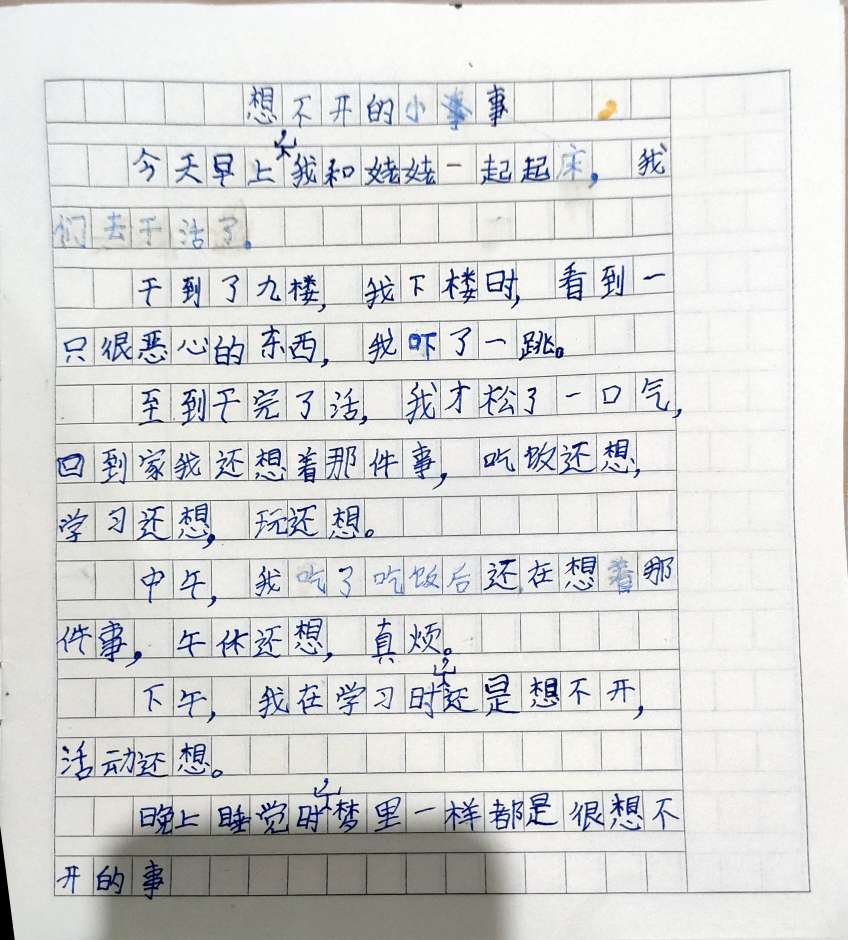 想不开的小事
今天早上，我和姥姥一起起床，我
们去干活了。
干到了九楼，我下楼时，看到一
只很恶心的东西，我吓了一跳。
至到干完了活，我才松了一口气，
回到家我还想着那件事，吃饭还想，
学习还想，玩还想。
中午，我吃了吃饭后还在想着那
件事，午休还想，真烦。
下午，我在学习时，还是想不开，
活动还想。
晚上睡觉时，梦里一样都是很想不
开的事